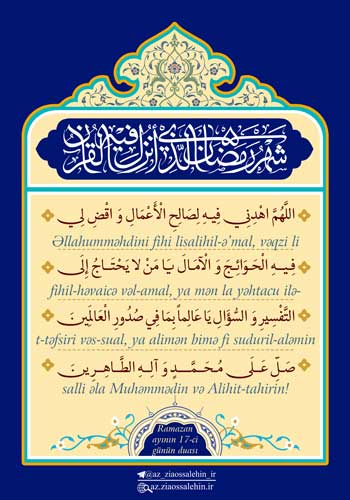 شَهْرُ رَمَضَانَ الَّذِي أُنْزِلَ فِيهِ الْقُرْآنُ
اللَّهُمَّ اهْدِنِي فِيهِ لِصَالِحِ الْأَعْمَالِ وَ اقْضِ لِي
Əllahumməhdini fihi lisalihil-ə'mal, vəqzi li
فِيهِ الْحَوَائِجَ وَ الْآمَالَ يَا مَنْ لَا يَحْتَاجُ إِلَى
fihil-həvaicə vəl-amal, ya mən la yəhtacu ilə-
التَّفْسِيرِ وَ السُّؤَالِ يَا عَالِماً بِمَا فِي صُدُورِ الْعَالَمِينَ
t-təfsiri vəs-sual, ya alimən bimə fi suduril-aləmin
صَلِّ عَلَى مُحَمَّدٍ وَ آلِهِ الطَّاهِرِينَ
salli əla Muhəmmədin və Alihit-tahirin!
Ramazan
ayının 17-ci
günün duası
@az_ziaossalehin_ir
az.ziaossalehin.ir